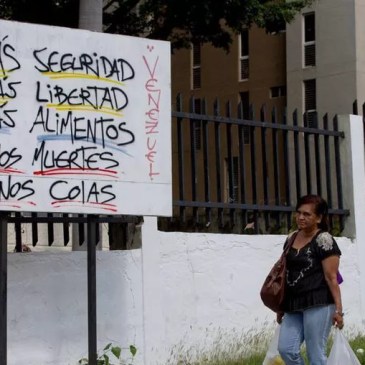 SEGURIDAD
LIBERTAD
ALIMENTOS
MUERTES
NOS COLAS
VENEZUEL